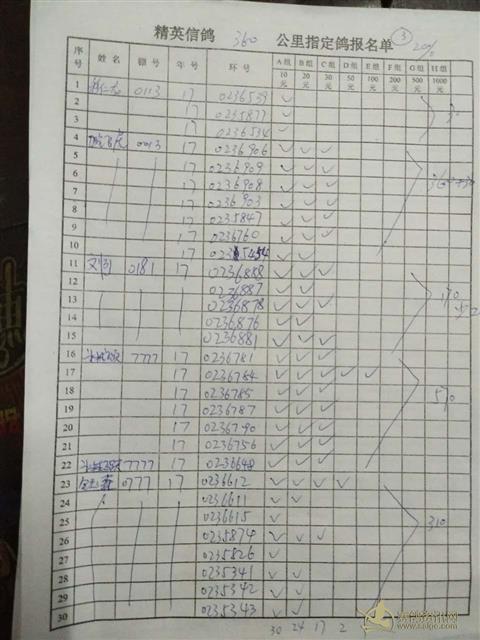 精英信鸽 360 公里指定鸽报名单 ③
20%
序号 姓名 棚号 年号 环号 A组 B组 C组 D组 E组 F组 G组 H组
10元 20元 30元 50元 100元 200元 500元 1000元
1 0113 17 0236539 ✓
2 17 0235877 ✓
3 17 0236534 ✓
4 0013 17 0236906 ✓ ✓ ✓
5 17 0236909 ✓ ✓ ✓
6 17 0236908 ✓ ✓ ✓
7 17 0236903 ✓ ✓ ✓
8 17 0235847 ✓ ✓ ✓
9 17 0236760 ✓ ✓ ✓
10 ✓ ✓
11 0181 17 0236888 ✓ ✓ ✓
12 0236887 ✓ ✓
13 0236878 ✓ ✓ ✓
14 0236876 ✓ ✓
15 0236881 ✓ ✓ ✓
16 7777 17 0236781 ✓ ✓ ✓
17 17 0236784 ✓ ✓ ✓ ✓ ✓
18 17 0236785 ✓ ✓ ✓
18 17 0236787 ✓ ✓ ✓
20 17 0236790 ✓ ✓ ✓
21 17 0236756 ✓ ✓ ✓
570
22 7777 17 0236648 ✓ ✓ ✓
23 0777 17 0236612 ✓ ✓ ✓ ✓
24 0236611 ✓ ✓
25 0236615 ✓
310
26 0235874 ✓ ✓ ✓
27 0235826 ✓
28 0235341 ✓ ✓
29 0235342 ✓ ✓
30 0235343 ✓ ✓
30 24 17 2